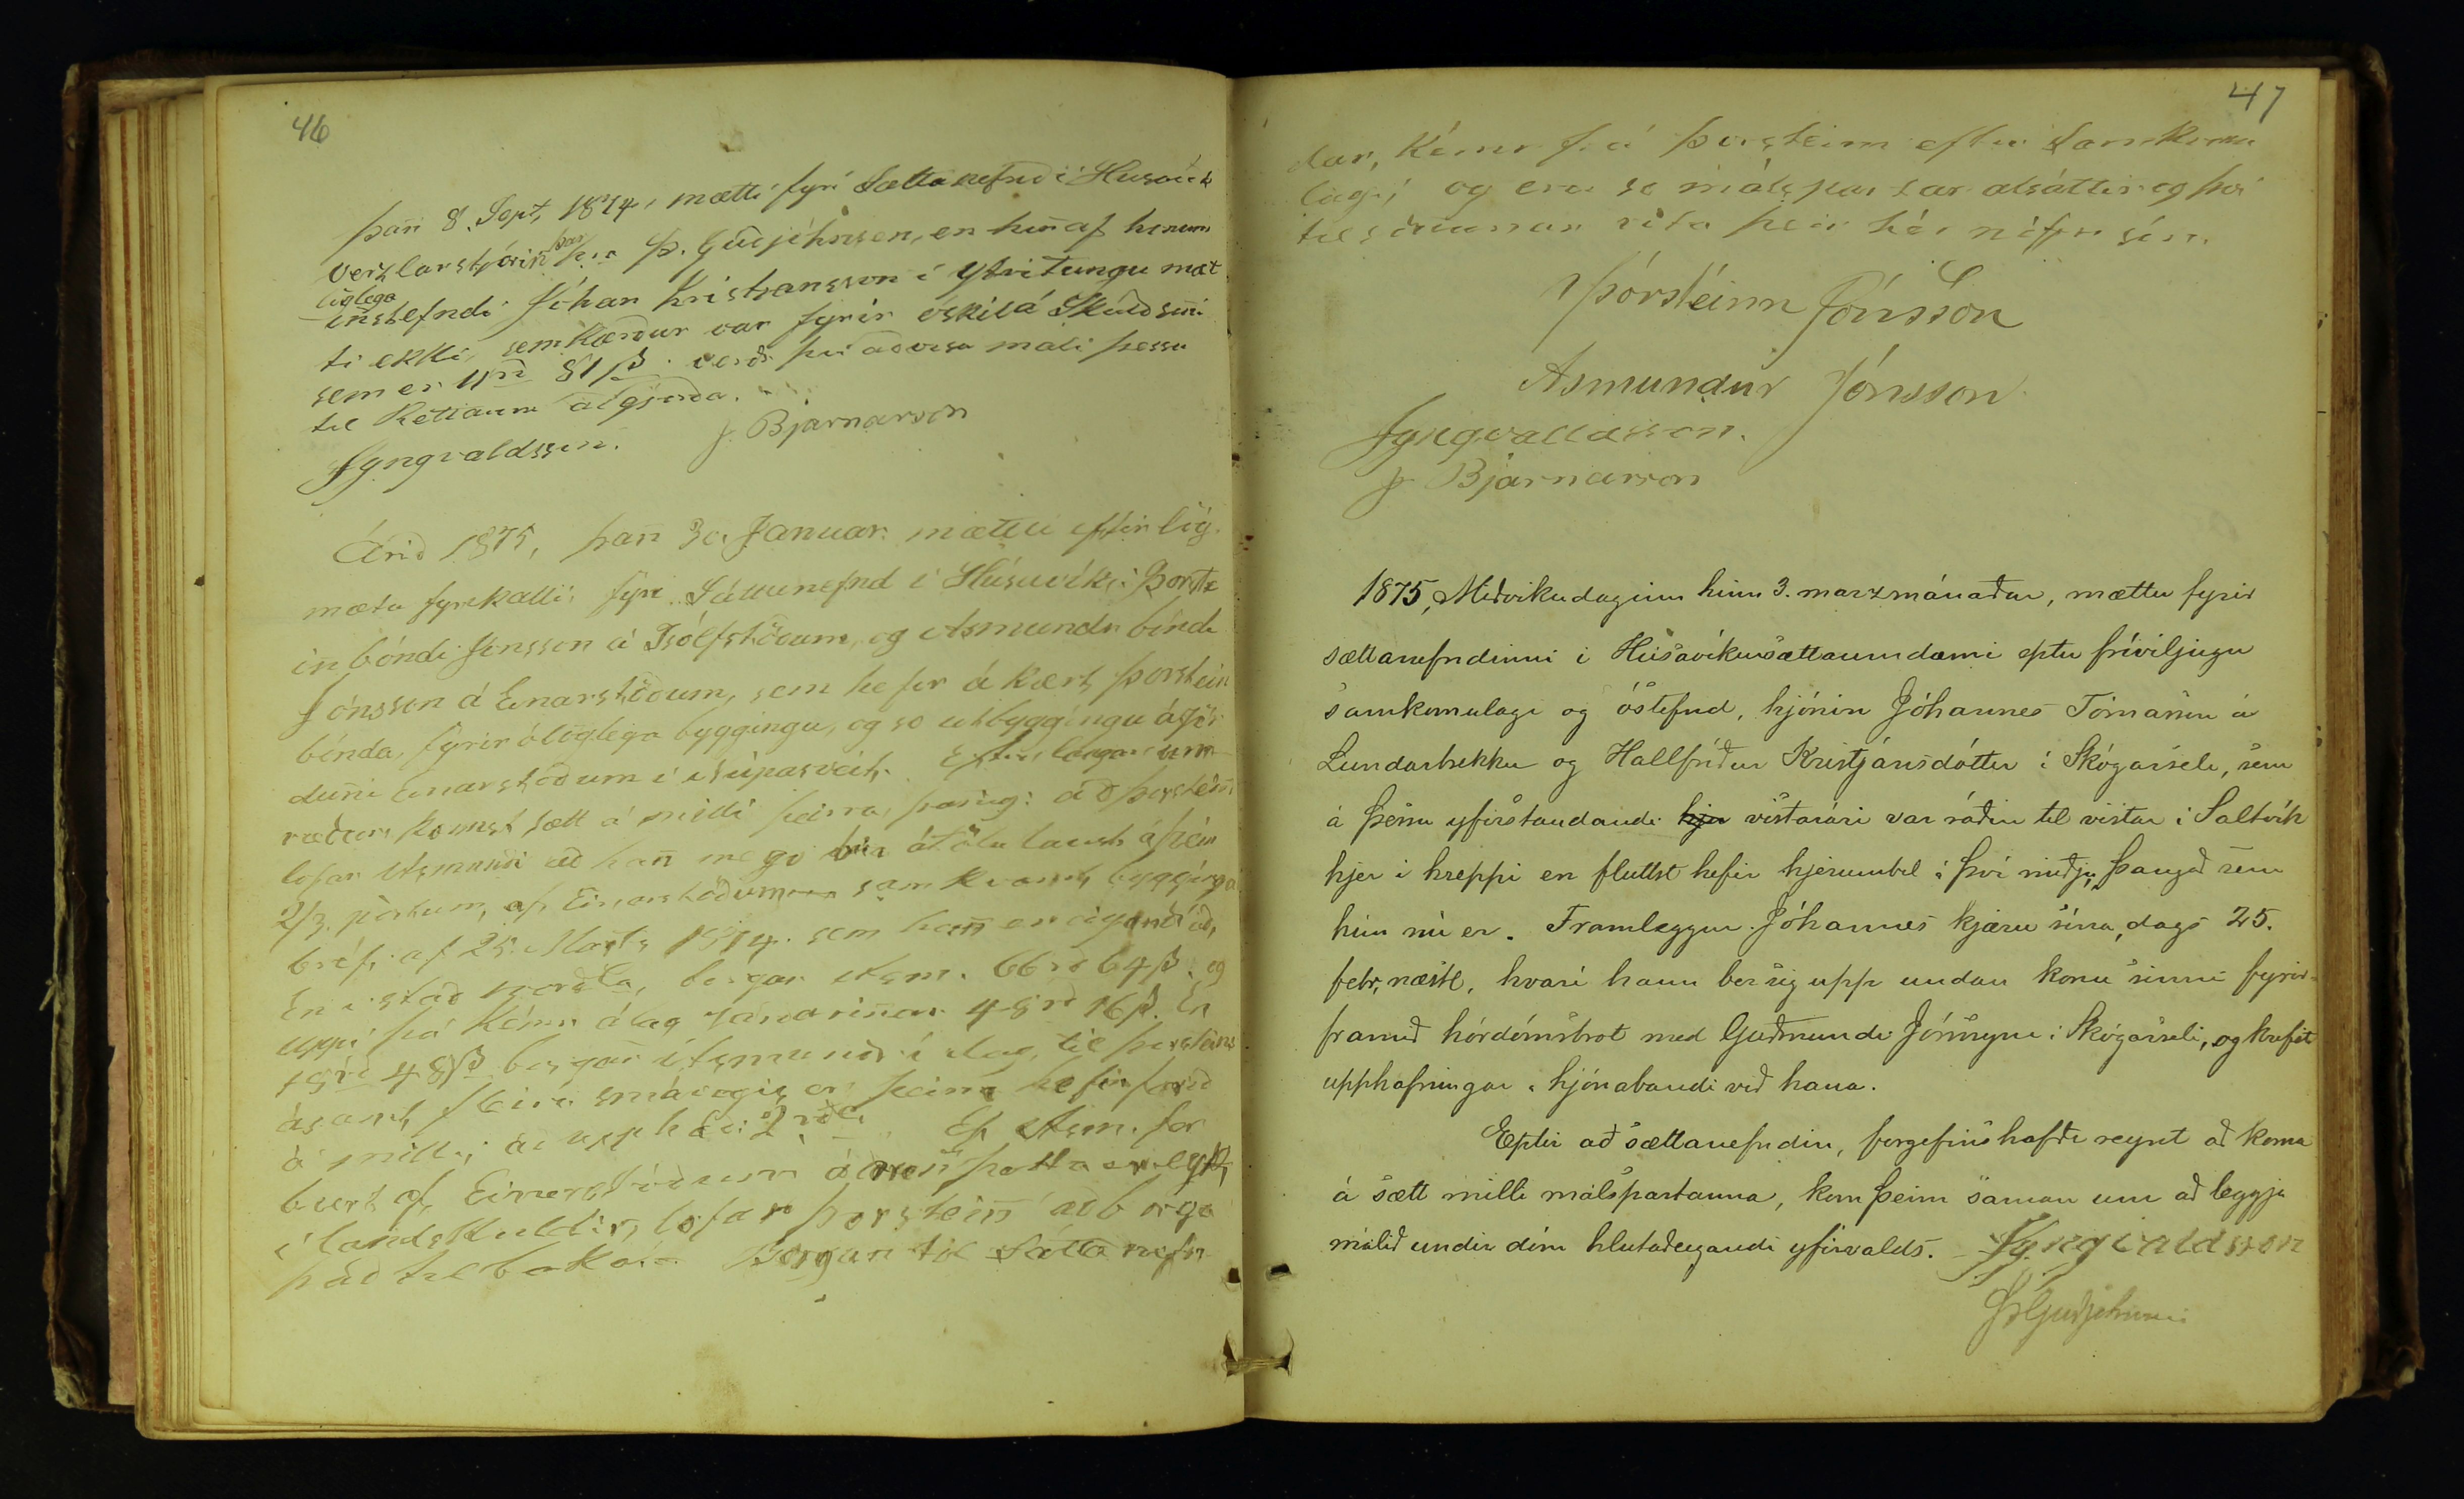 46
þan̄ 8. Sept, 1874, mætti fyri Sættanefnd i Húsavík
verzlarstjórin̄ þar hra Þ. Guðjohnsen, en hin̄ af honum
löglega
in̄stefndi Jóhan Kristiansson i Ytritungu mæt
ti ekki, sem kærður var fyrir óskil á Skuld sin̄i
sem er 11rd 81 β. verðr þvi að visa máli þessu
til Rettarum̄ algjörða.
JYngvaldsson.
J. Bjarnarson
Árið 1875, þan̄ 30. Januar. mættu eftir lög
mæta fyrikalli, fyri Sáttanefnd i Húsavík: Þorste
in̄ bóndi Jonsson á Isólfstöðum, og Asmundr bóndi
Jónsson á Einarstöðum, sem hefir ákært Þorstein
bónda, fyrir ólöglega byggingu, og so utbyggingu á jör
dun̄i Einarstöðum i Núpasveit. Eftir langar um
ræður, komst sætt á milli þeirra, þan̄ig: að Þorstein̄
lofar Asmundi að han̄ megi búa átölu laust á þeim
2/3 pörtum, af Einarstöðum samkvæmt byggingar
bréfi af 25. Marts 1874. sem han̄ er eigandi að,
En i stað borgar Asm. 66rd 64β. og
uppi þá kémr álag 48rd 16β. En
18rd 48β borgar Asmundr i dag, til Þorsteins
ásamt fleira smávegis er þeim hefir farið
á milli, að upphæð: 2 rd. Ef Asm. fer
burt af Einarstöðum áðren̄ þetta er lykt,
i landskuldir, lofar Þorstein̄ að borga
það tilbaka. Borgun til Sáttanefn
47
dar, kémr frá Þorsteini eftir samkomu
lagi, og eru so málspartar alsáttir og því
til sön̄unar rita þeir hér nöfn sín.
Þórsteinn Jónsson
Asmundur Jónsson
JYngvaldsson.
J. Bjarnarson
1875, Miðvikudaginn hinn 3. marzmánaðar, mættu fyrir
sættanefndinni i Húsavíkursættaumdæmi eptir fríviljugu
samkomulagi og óstefnd, hjónin Jóhannes Tómasson á
Lundarbrekku og Hallfríður Kristjánsdóttir i Skógarseli, sem
á þessu yfirstandandi hjer vistarári var ráðin til vistar i Saltvík
hjer i hreppi en fluttst hefir hjerumbil i því miðju, þangað sem
hún nú er. Framleggur Jóhannes kjæru sína, dags 25.
febr, næstl, hvari hann ber sig upp undan konu sinni fyrir
framið hórdómsbrot með Guðmundi Jónssyni i Skógarseli, og krefst
upphafningar á hjónabandi við hana.
Eptir að sættanefndin, forgefins hafði reynt að koma
á sætt milli málspartanna, kom þeim saman um að leggja
málið undir dóm hlutaðeigandi yfirvalds. JYngvaldsson
ÞGuðjohnsen